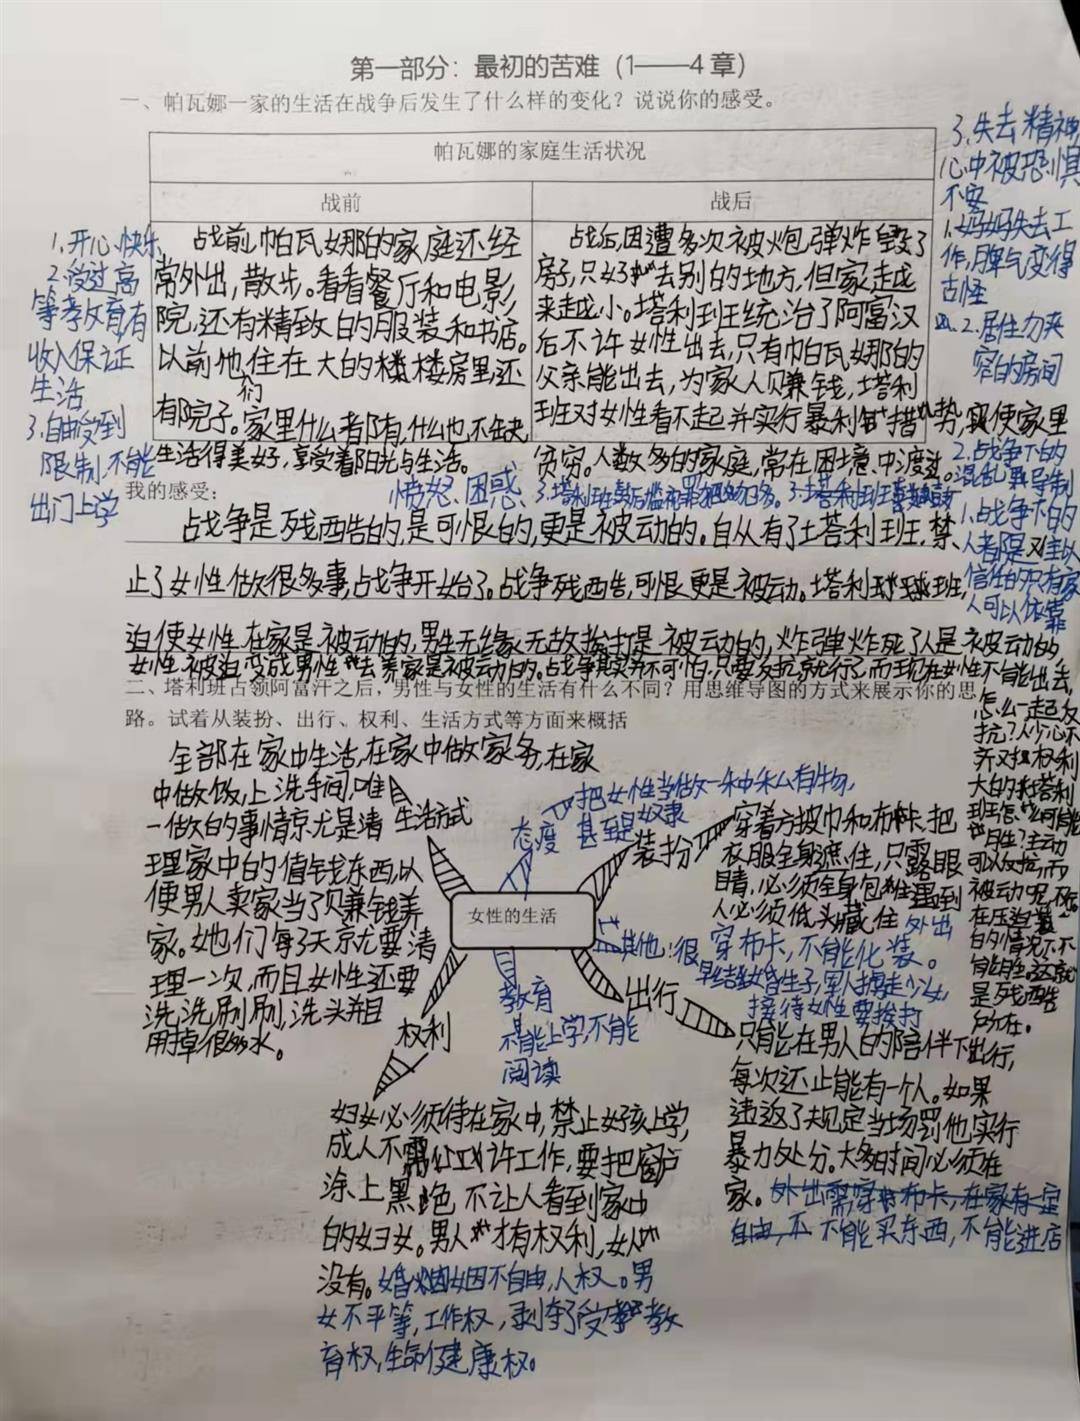 第一部分：最初的苦难（1——4章）
一、帕瓦娜一家的生活在战争后发生了什么样的变化？说说你的感受。
帕瓦娜的家庭生活状况
战前
战后
1.开心、快乐
2.受过高
等教育,有
收入保证
生活
3.自由受到
限制,不能
出门上学
战前,帕瓦娜的家庭还经
常外出，散步。看看餐厅和电影
院,还有精致的服装和书店。
以前他们住在大的楼房里,还
有院子。家里什么都有,什么也不缺,
生活得美好,享受着阳光与生活。
战后,因遭多次被炮弹炸毁了
房子,只好去别的地方,但家越
来越小。塔利班统治了阿富汗
后不许女性出去,只有帕瓦娜的
父亲能出去,为家人赚钱,塔利
班对女性看不起并实行暴利措势,使家里
贫穷。人数多的家庭,常在困境中渡过。
3.失去精神,
心中被恐惧
不安
1.妈妈失去工
作,脾气变得
古怪
2.居住力夹
窄的房间
我的感受：
愤怒、困惑、
战争是残酷的,是可恨的,更是被动的。自从有了塔利班,禁
止了女性做很多事,战争开始了。战争残酷,可恨,更是被动。塔利班,
迫使女性在家是被动的,男生无缘无故挨打是被动的,炸弹炸死了人是被动的,
女性被迫变成男性去养家是被动的。战争其实并不可怕,只要反抗就行了,而现在女性不能出去,
怎么一起反
抗？人少心不
齐又
权利
大的塔利
班怎么可能
胜？主动
可以反抗,而
被动呢不。
在压迫
的情况下不
能胜。这就
是残酷
所在。
2.战争下的
混乱导制
1.战争下的
人都是难以
信任的只有家
人可以依靠
二、塔利班占领阿富汗之后，男性与女性的生活有什么不同？用思维导图的方式来展示你的思
路。试着从装扮、出行、权利、生活方式等方面来概括
女性的生活
生活方式
全部在家中生活,在家中做家务,在家
中做饭,上洗手间,唯
一做的事情京尤是清
理家中的值钱东西,以
便男人卖家当了赚钱养
家。她们每天京尤要清
理一次,而且女性还要
洗洗刷刷,洗头并且
用掉很多水。
态度
把女性当做一种私有物,
甚至是奴隶
装扮
穿着方披巾和布卡,把
衣服全身遮住,只露眼
睛,必须全身包住遇到
人必须低头藏住
外出
穿布卡,不能化装。
其他:很
早结婚生子,军人掳走少女,
接待女性要挨打
教育
不能上学,不能
阅读
出行
只能在男人的陪伴下出行,
每次还止能有一个人。如果
违返了规定当场罚他,实行
暴力处分。大多时间必须在
家。外出需穿布卡,在家有一定
自由,不能买东西,不能进店
权利
妇女必须待在家中,禁止女孩上学,
成人不许工作,要把窗户
涂上黑色,不让人看到家中
的妇女。男人才有权利,女人
没有。婚姻不自由,人权。男
女不平等,工作权,剥夺了受教
育权,生命健康权。